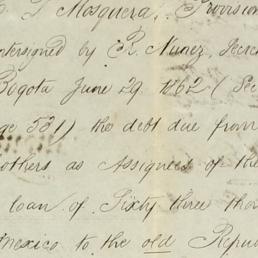 T Mosquera, Provision
ntersigned by R. Nunez, Secre
Bogota June 29 1862 (Sec
ge 531) the debt due from
others as Assignees of the
loan of Sixty three thou
Mexico to the old Repu